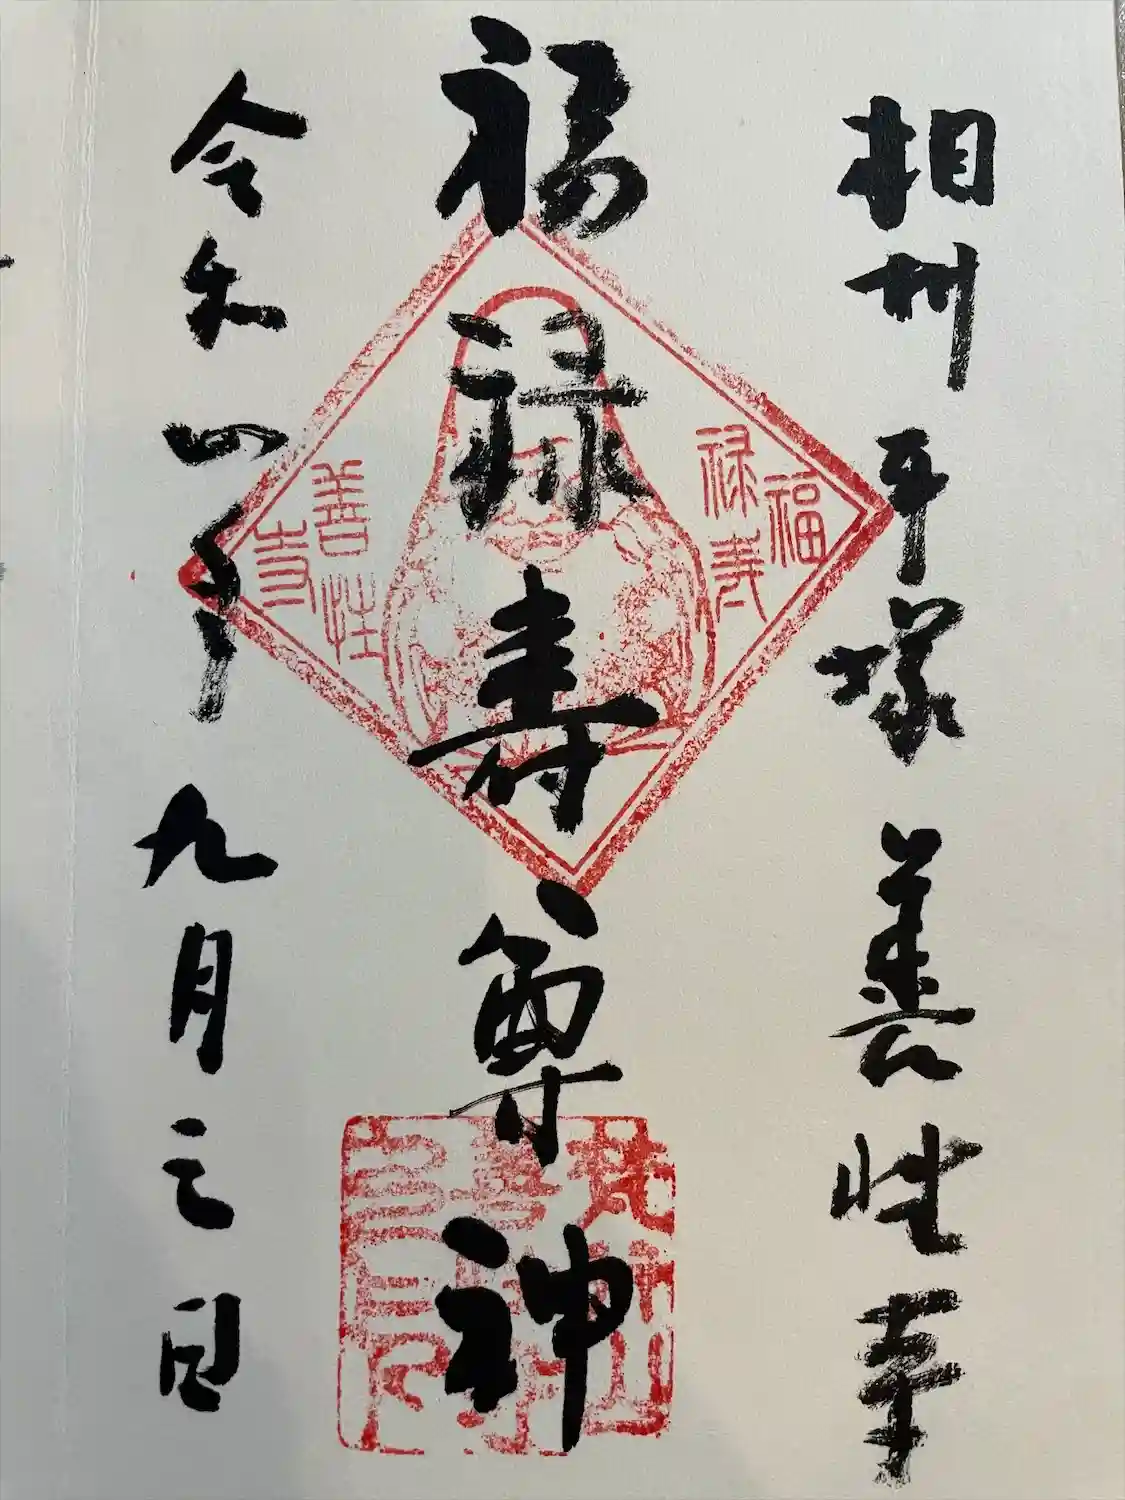 相州平塚善性寺
福禄寿尊神
令和四年九月三日
福禄寿
善性寺